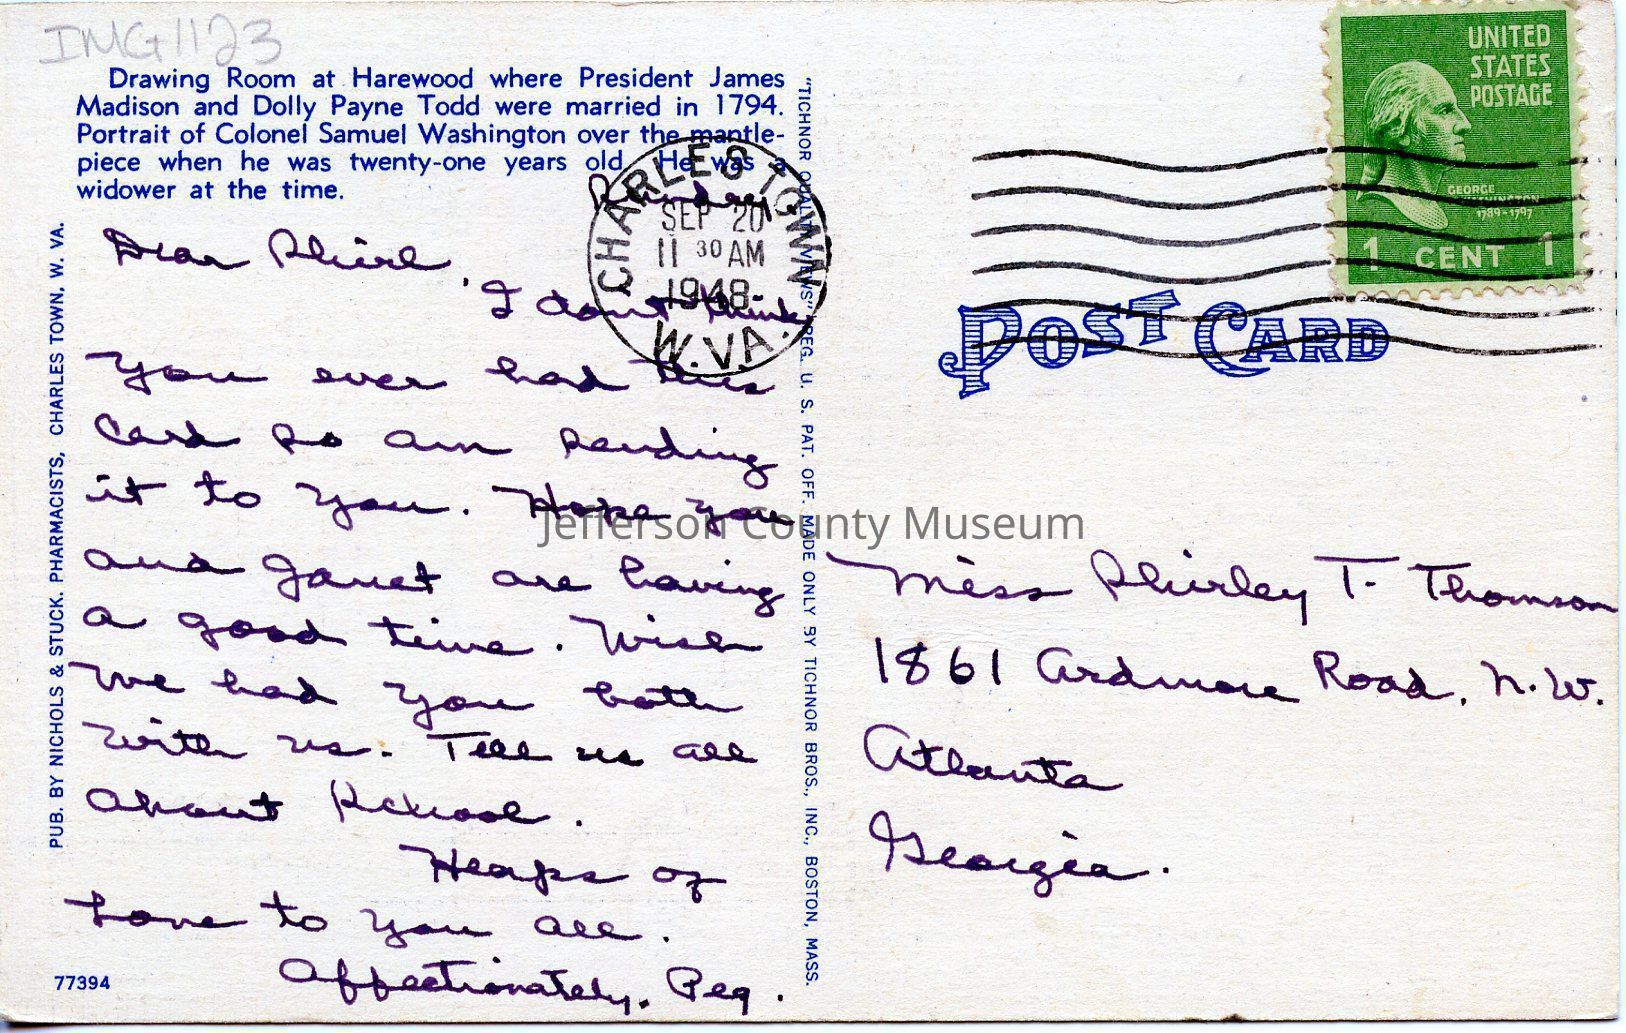 IMG1123
Drawing Room at Harewood where President James
Madison and Dolly Payne Todd were married in 1794.
Portrait of Colonel Samuel Washington over the mantle-
piece when he was twenty-one years old. He was a
widower at the time.
Sunday
Dear Shirl,
I dont think
you ever had this
card so am sending
it to you. Hope you
and Janet are having
a good time. Wish
we had you both
with us. Tell us all
about school.
Heaps of
Love to you all.
Affectionately, Peg.
77394
PUB. BY NICHOLS & STUCK, PHARMACISTS, CHARLES TOWN, W. VA.
"TICHNOR QUALITY VIEWS" REG. U. S. PAT. OFF. MADE ONLY BY TICHNOR BROS., INC., BOSTON, MASS.
CHARLES TOWN
SEP 20
11 30 AM
1948
W.VA.
UNITED
STATES
POSTAGE
GEORGE
WASHINGTON
1789-1797
1 CENT 1
POST CARD
Jefferson County Museum
Miss Shirley T. Thomson
1861 Ardmore Road, N.W.
Atlanta
Georgia.